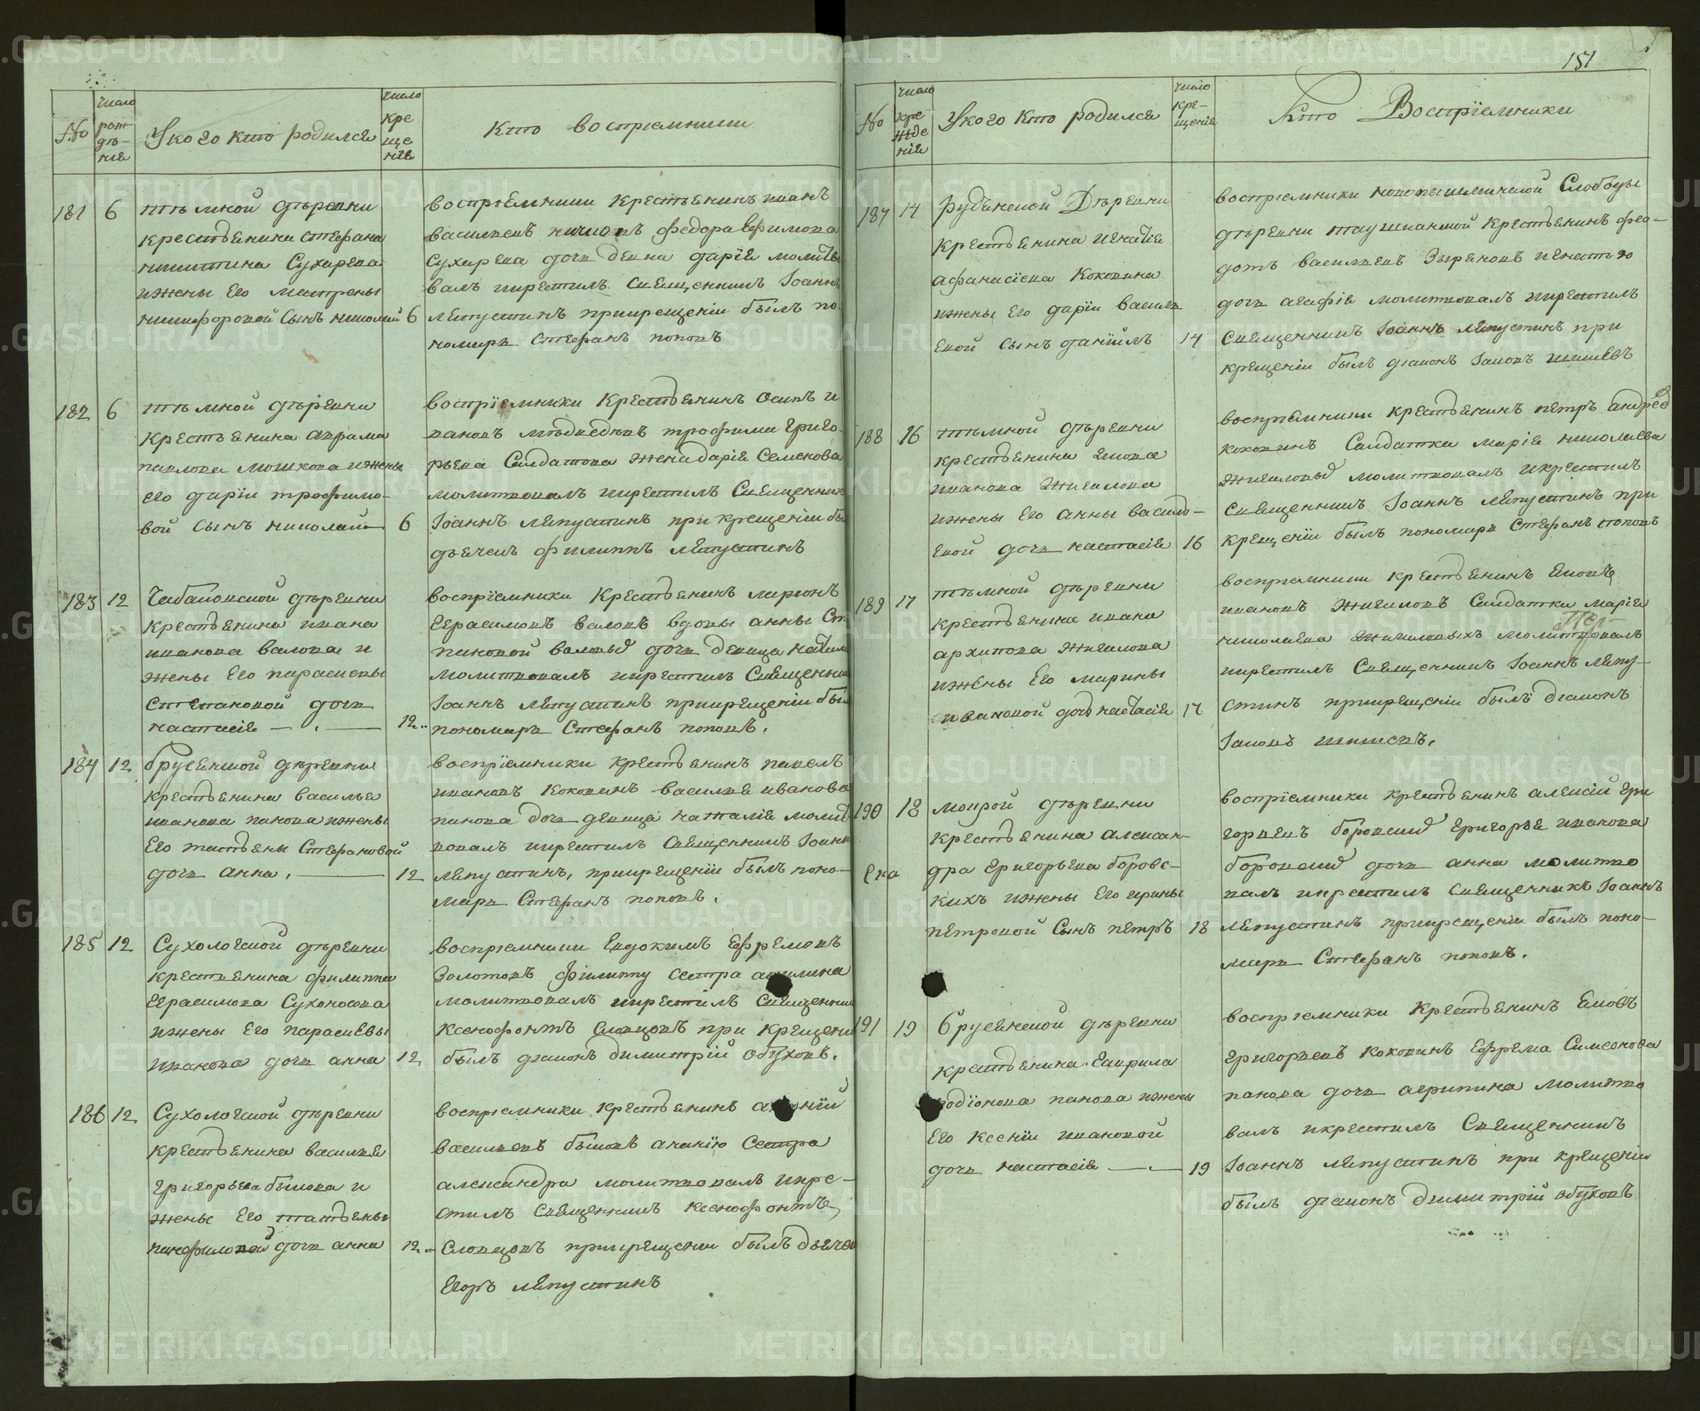 151
№
число рождѣния
У кого кто родился
число крещенïя
Кто воспрïемники
181 6
тѣмной дѣревни
крестьянина стефана
никитина Сухарева
и жены его матрены
никифоровой Сынъ николай 6
воспрïемники крестьянинъ иванъ
васильевъ федора Ефимова
Сухарева дочь девка дарïя молитво
валъ и крестилъ Священникъ Iоаннъ
ляпустинъ при крещенïи былъ по
номарь Стефанъ поповъ
182 6
тѣмной дѣревни
крестьянина аврама
павлова мошкова и жены
его дарïи трофимо-
вой сынъ николай 6
воспрïемники крестьянинъ осипъ и
вановъ мѣдведевъ трофима григо-
рьева Салдатова жена дарïя Семенова
молитвовалъ и крестилъ Священникъ
Iоаннъ ляпустинъ при крещенïи бы
дьячекъ филиппъ ляпустинъ
183 12
крестьянина ивана
иванова валова и
жены его парасковьи
Степановой дочь
настасïя 12
воспрïемники крестьянинъ ларïонъ
герасимовъ валовъ вдовы анны Сте
пановой валовой дочь девица
молитвовалъ и крестилъ Священникъ
Iоаннъ ляпустинъ при крещенïи был
пономарь Стефанъ поповъ.
184 12
брусенской дѣревни
крестьянина василья
иванова панова и жены
его татьяны Стефановой
дочь анна. 12
воспрïемники крестьянинъ павелъ
ивановъ коковинъ василья иванова
панова дочь девица наталïя молит
вовалъ и крестилъ Священникъ Iоаннъ
ляпустинъ, при крещенïи былъ поно-
марь Стефанъ поповъ.
185 12
Сухоложской дѣревни
крестьянина филиппа
герасимова Сухоносова
и жены его парасковьи
иванова дочь анна 12
воспрïемники Евдокимъ Ефремовъ
Золотовъ филиппу сестра акилина
молитвовалъ и крестилъ Священникъ
Ксенофонтъ Словцовъ при крещени
былъ дïаконъ димитрïй обуховъ.
186 12
Сухоложской дѣревни
крестьянина василья
григорьева быкова и
жены его татьяны
панфиловой дочь анна 12
воспрïемники крестьянинъ
васильевъ быковъ ананïю Сестра
александра молитвовалъ и кре-
стилъ Священникъ Ксенофонтъ
Словцовъ при крещенïи былъ дьячекъ
Егоръ ляпустинъ
№
У кого кто родился
число крещенïя
Кто Воспрïемники
187 14
рудянской Дѣревни
крестьянина игнатïя
афанасïева коковина
и жены его дарïи василь
евой сынъ данïилъ 14
воспрïемники новопышминской Слободы
дѣревни таушканской крестьянинъ фео-
дотъ васильевъ Зыряновъ игнатью
дочь агафïя молитвовалъ и крестилъ
Священникъ Iоаннъ ляпустинъ при
крещенïи былъ дïаконъ Iаковъ шишевъ
188 16
тѣмной дѣревни
крестьянина якова
иванова жигалова
и жены его анны василь-
евой дочь настасïя 16
воспрïемники крестьянинъ петръ андреев
коковинъ Салдатка марïя николаева
жигаловыхъ молитвовалъ и крестилъ
Священникъ Iоаннъ ляпустинъ при
крещенïи былъ пономарь Стефанъ поповъ
189 17
тѣмной дѣревни
крестьянина ивана
архипова жигалова
и жены его марины
ивановой дочь настасïя 17
воспрïемники крестьянинъ яковъ
ивановъ жигаловъ Салдатка марïя
николаева жигаловыхъ молитвовалъ
и крестилъ Священникъ Iоаннъ ляпу-
стинъ при крещенïи былъ дïаконъ
Iаковъ шишевъ.
190 18
мокрой дѣревни
крестьянина алексан-
дра григорьева боровс-
кихъ и жены его ирины
петровой Сынъ петръ 18
воспрïемники крестьянинъ алексïй гри
горьевъ боровской григорья иванова
боровской дочь анна молитво
валъ и крестилъ Священникъ Iоаннъ
ляпустинъ при крещенïи былъ поно-
марь Стефанъ поповъ.
191 19
брусянской дѣревни
крестьянина гаврила
родïонова панова и жены
его ксенïи ивановой
дочь настасïя 19
воспрïемники крестьянинъ яковъ
григорьевъ коковинъ Ефрема Симеонова
панова дочь агрипина молитво
валъ и крестилъ Священникъ
Iоаннъ ляпустинъ при крещенïи
былъ дïаконъ димитрïй обуховъ
METRIKI.GASO-URAL.RU